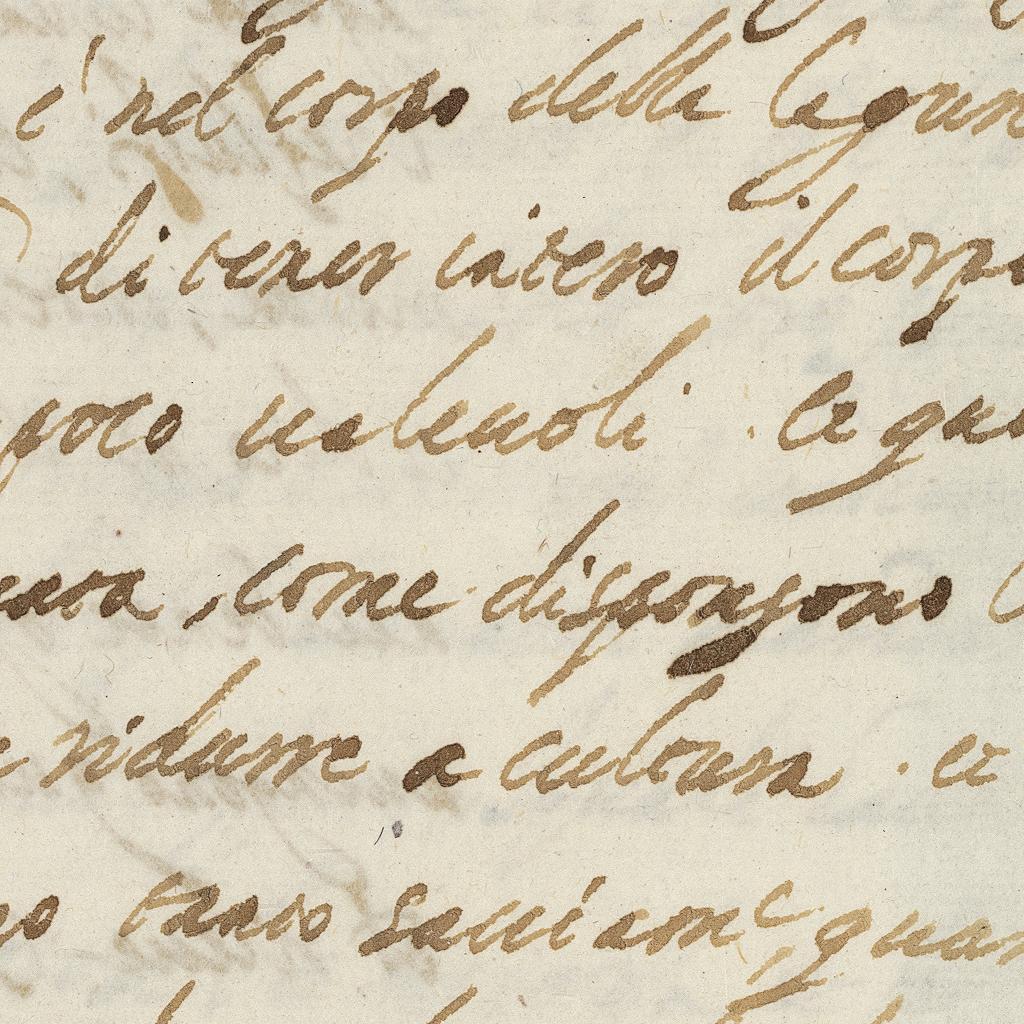 è nel corpo della lagun
di tener intero il corpo
poco ualeuoli. le qua
, come dispongono
ridurre a cultura. et
tanto sauiam.e quan